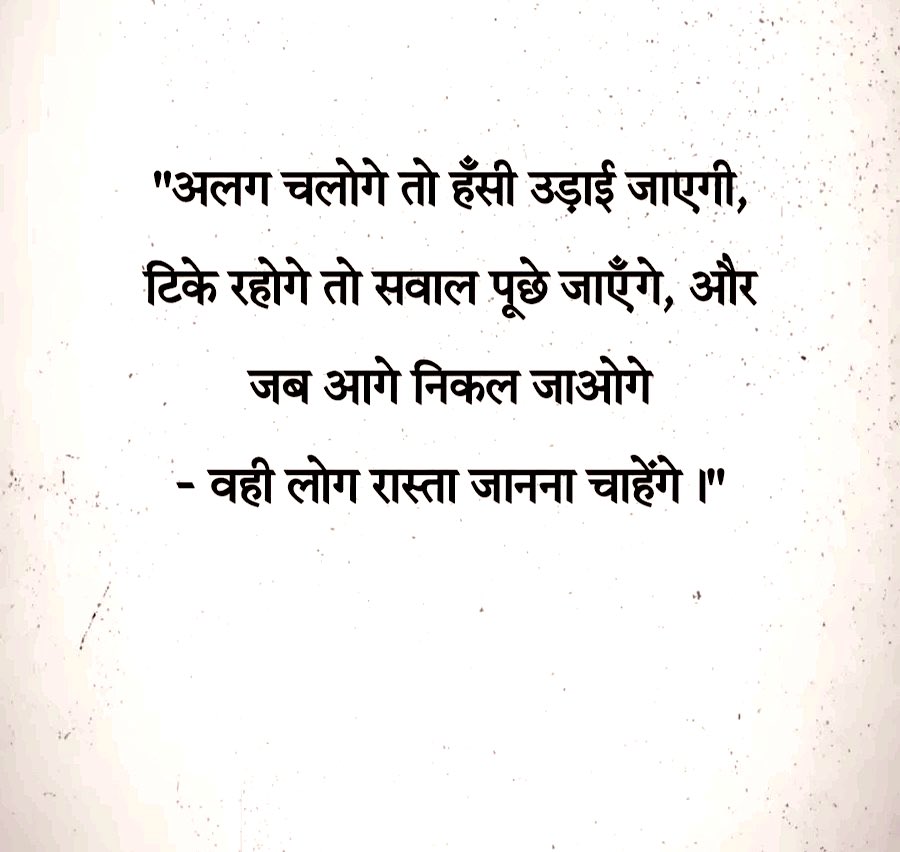 "अलग चलोगे तो हँसी उड़ाई जाएगी,
टिके रहोगे तो सवाल पूछे जाएँगे, और
जब आगे निकल जाओगे
- वही लोग रास्ता जानना चाहेंगे ।"